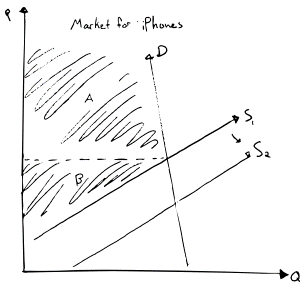 P
Market for iPhones
D
A
S₁
S₂
B
Q